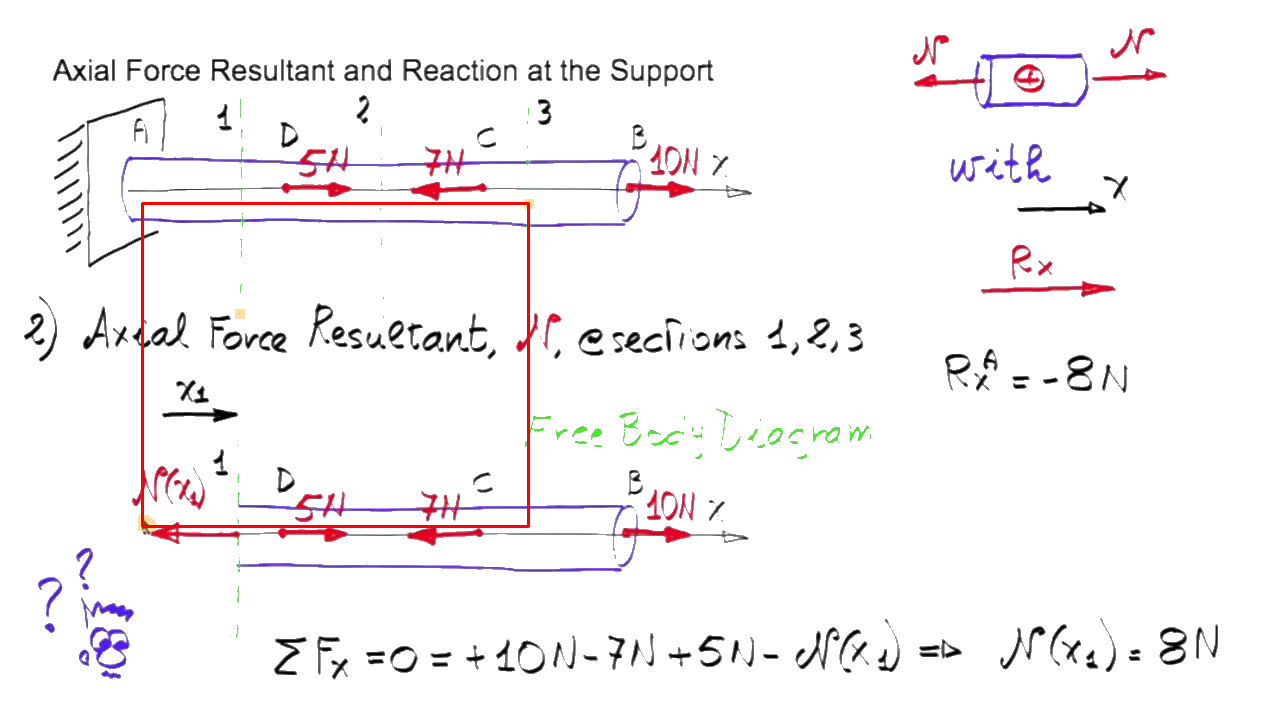 Axial Force Resultant and Reaction at the Support
N N
A 1 D 5N 2 7N C 3 B 10N x
with
x
Rx
2) Axial Force Resultant, N, @sections 1, 2, 3
RxA = -8N
x1
Free Body Diagram
N(x1) 1 D 5N 7N C B 10N x
? ?
ΣFx = 0 = +10N - 7N + 5N - N(x1) => N(x1) = 8N